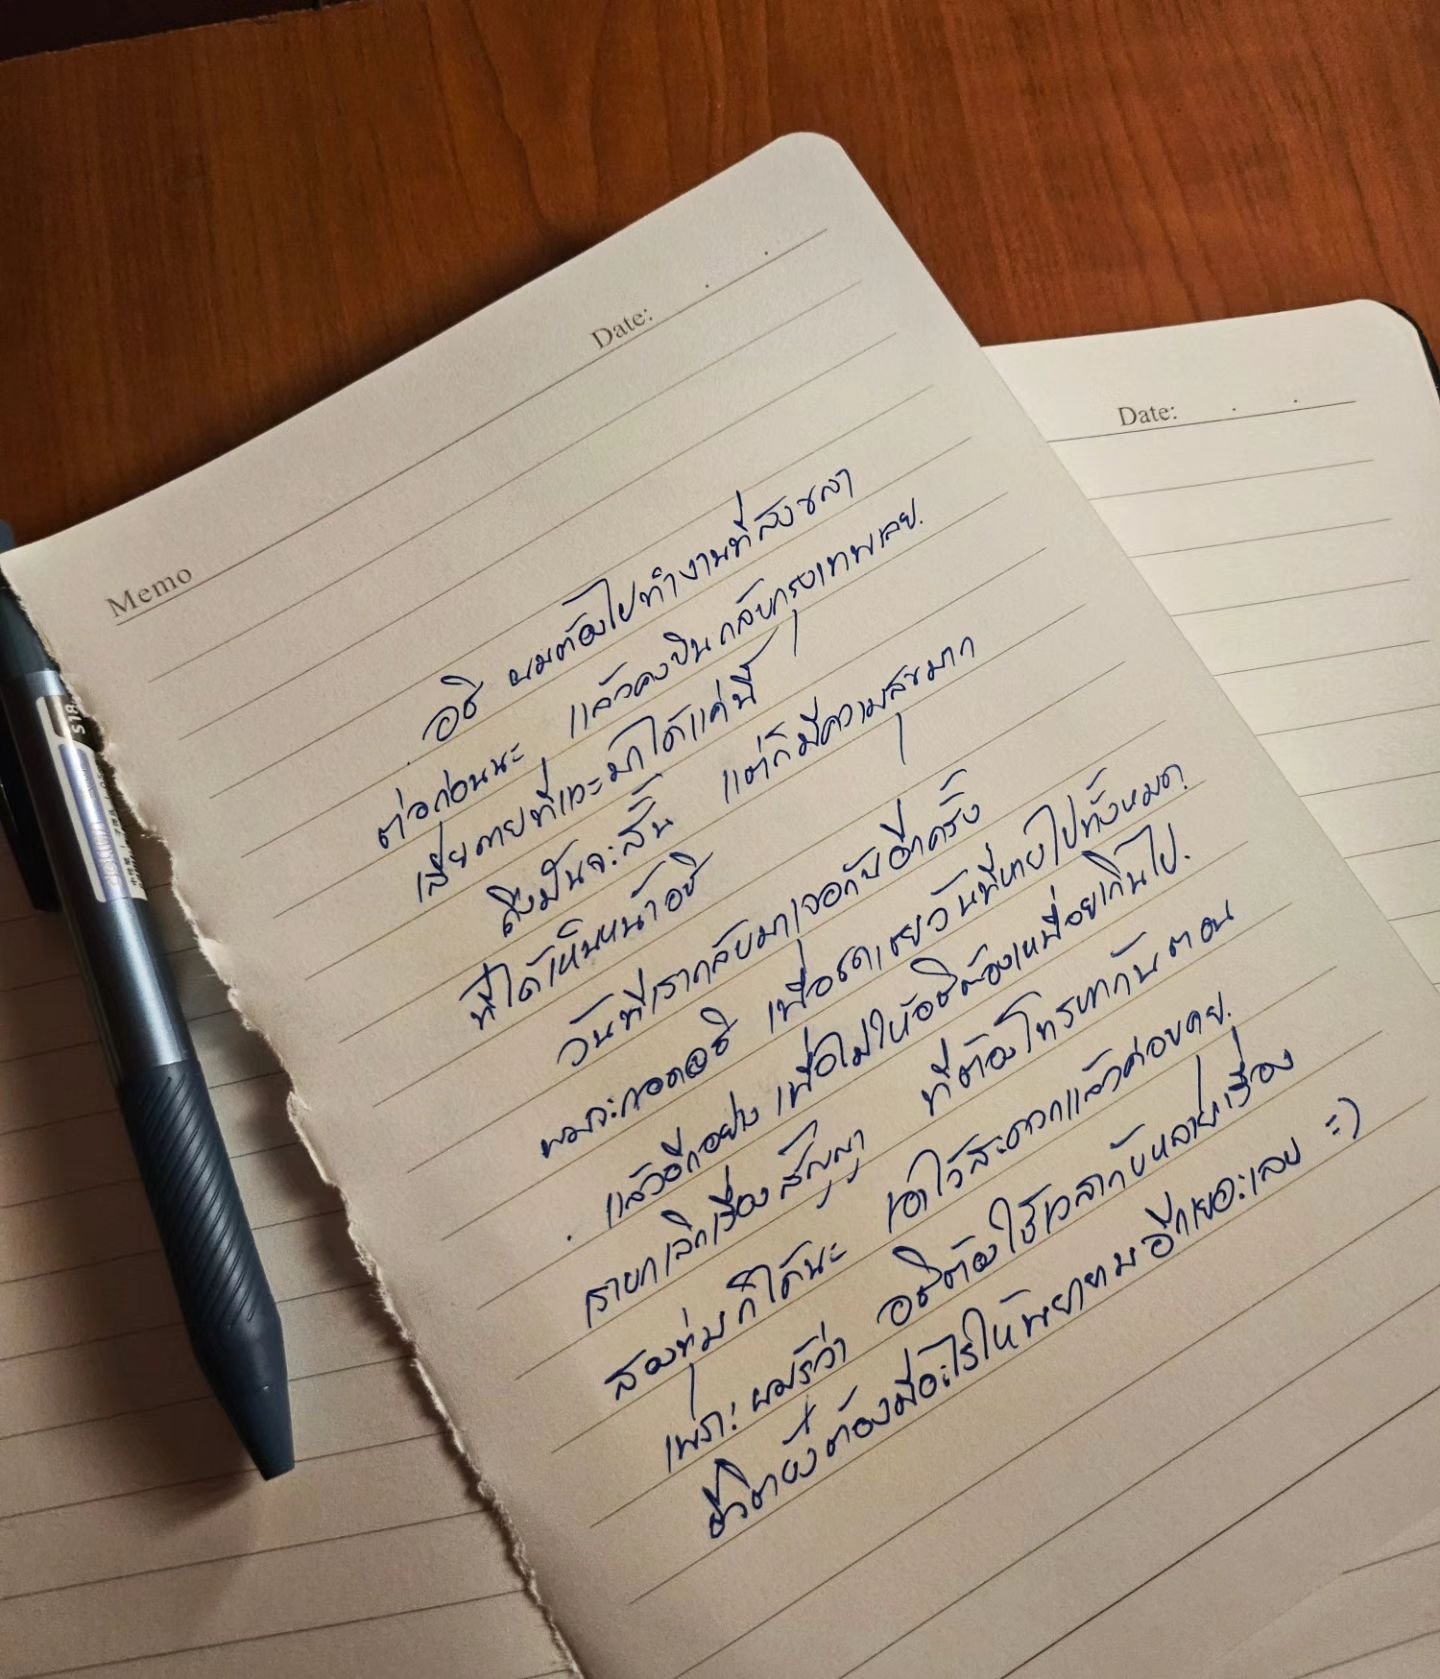 Memo Date:
Date:
อชิ ผมต้องไปทำงานที่สงขลา
ต่อก่อนนะ แล้วคงบินกลับกรุงเทพเลย.
เสียดายที่แวะมาได้แค่นี้
ถึงมันจะสั้น แต่ก็มีความสุขมาก
ที่ได้เห็นหน้าอชิ
วันที่เรากลับมาเจอกันอีกครั้ง
ผมจะกอดอชิ เพื่อชดเชยวันที่หายไปทั้งหมด
แล้วอีกอย่าง เพื่อไม่ให้อชิต้องเหนื่อยเกินไป.
เรายกเลิกเรื่องสัญญา ที่ต้องโทรหากันตอน
สองทุ่มก็ได้นะ เอาไว้สะดวกแล้วค่อยคุย.
เพราะผมรู้ว่า อชิต้องใช้เวลากับหลายเรื่อง
ชีวิตยังต้องมีอะไรให้พยายามอีกเยอะเลย =)